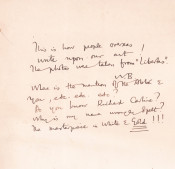 This is how people overseas
write upon our art!
The photos were taken from "Libertas"
WB
When is the of the Mobile &
you, etc. etc. etc?
Do you know Richard Carline?
Why is my name wrongly spelt?
The masterpiece is white & Gold!!!